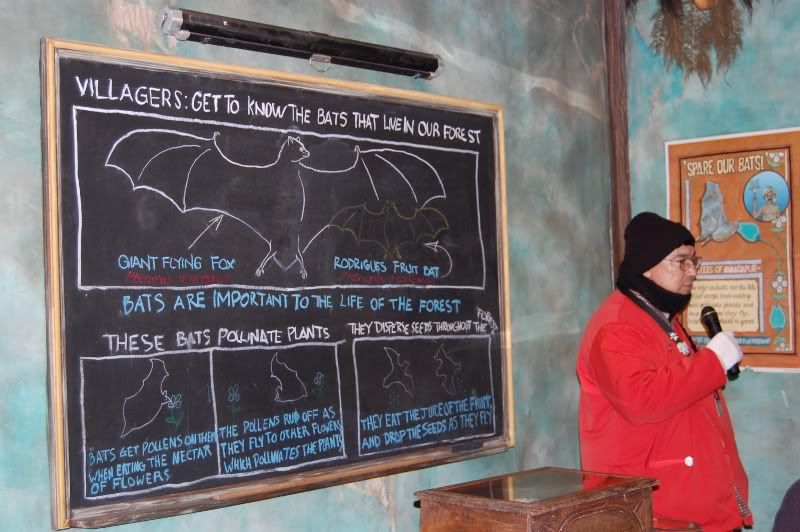 VILLAGERS: GET TO KNOW THE BATS THAT LIVE IN OUR FOREST
GIANT FLYING FOX
RODRIGUES FRUIT BAT
BATS ARE IMPORTANT TO THE LIFE OF THE FOREST
THESE BATS POLLINATE PLANTS
THEY DISPERSE SEEDS THROUGHOUT THE FOREST
BATS GET POLLENS ON THEM
WHEN EATING THE NECTAR
OF FLOWERS
THE POLLENS RUB OFF AS
THEY FLY TO OTHER FLOWERS
WHICH POLLINATES THE PLANTS
THEY EAT THE JUICE OF THE FRUIT,
AND DROP THE SEEDS AS THEY FLY
SPARE OUR BATS!